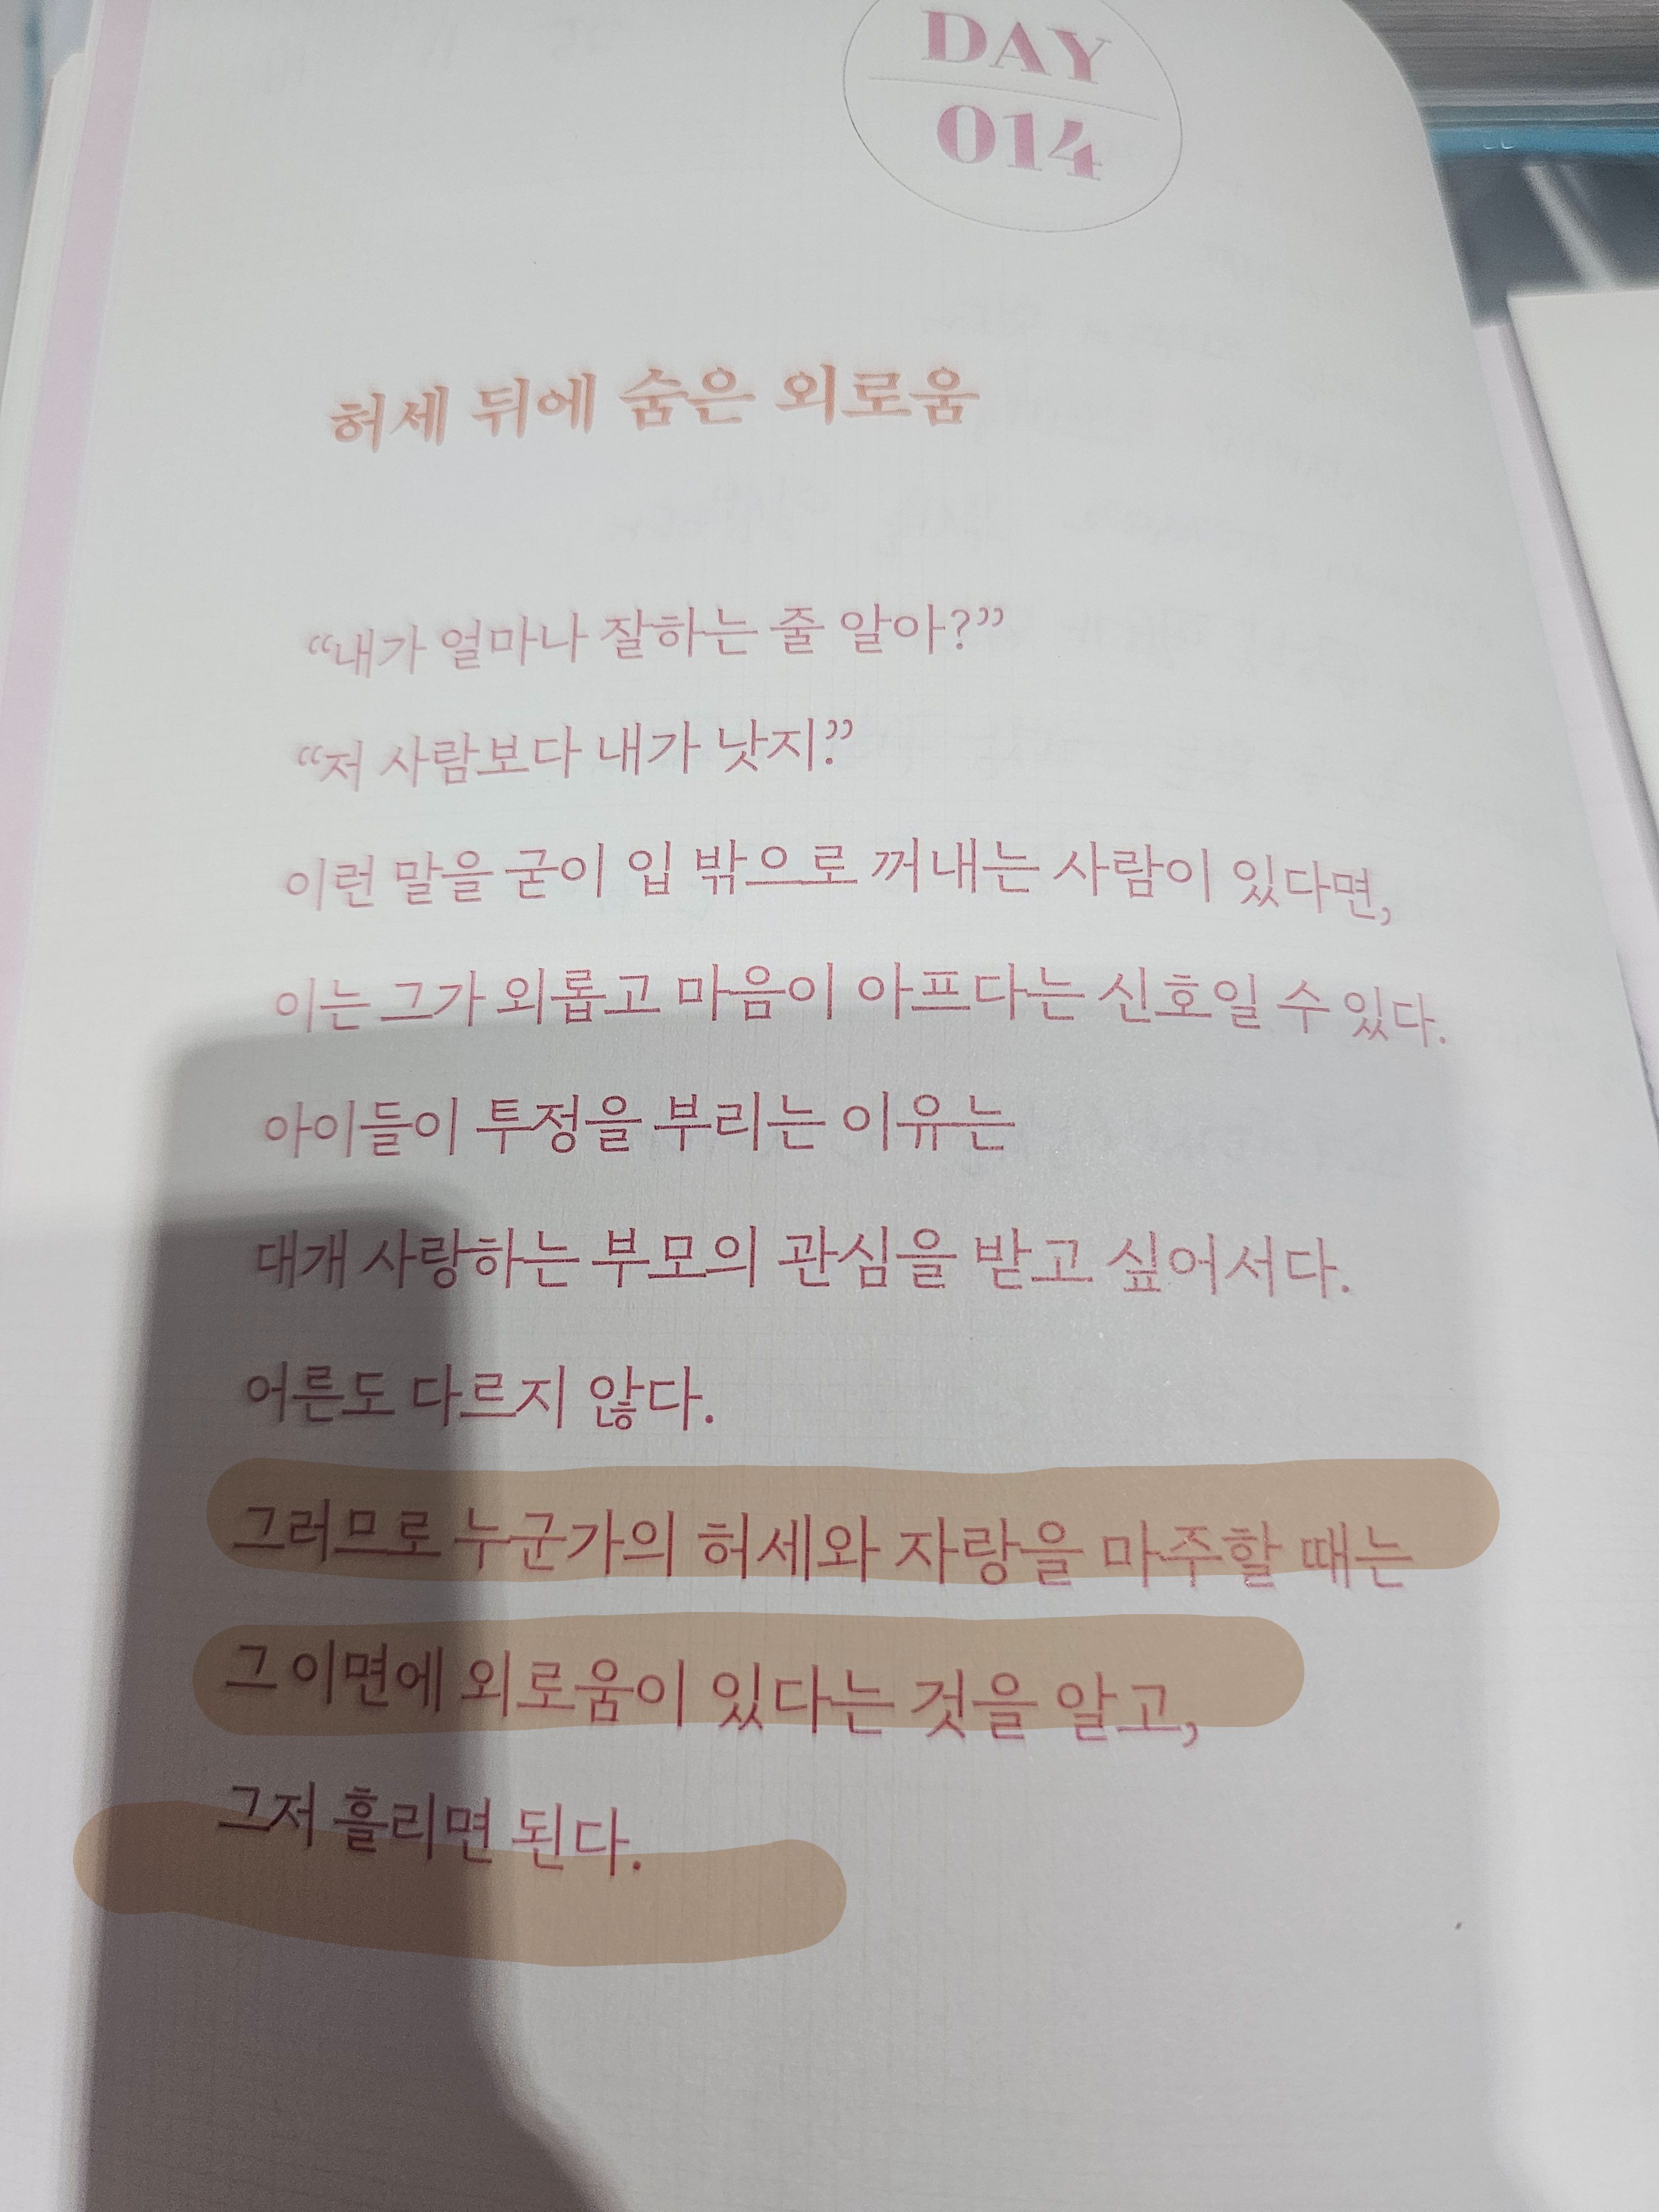 DAY
014
허세 뒤에 숨은 외로움
“내가 얼마나 잘하는 줄 알아?”
“저 사람보다 내가 낫지.”
이런 말을 굳이 입 밖으로 꺼내는 사람이 있다면,
이는 그가 외롭고 마음이 아프다는 신호일 수 있다.
아이들이 투정을 부리는 이유는
대개 사랑하는 부모의 관심을 받고 싶어서다.
어른도 다르지 않다.
그러므로 누군가의 허세와 자랑을 마주할 때는
그 이면에 외로움이 있다는 것을 알고,
그저 흘리면 된다.